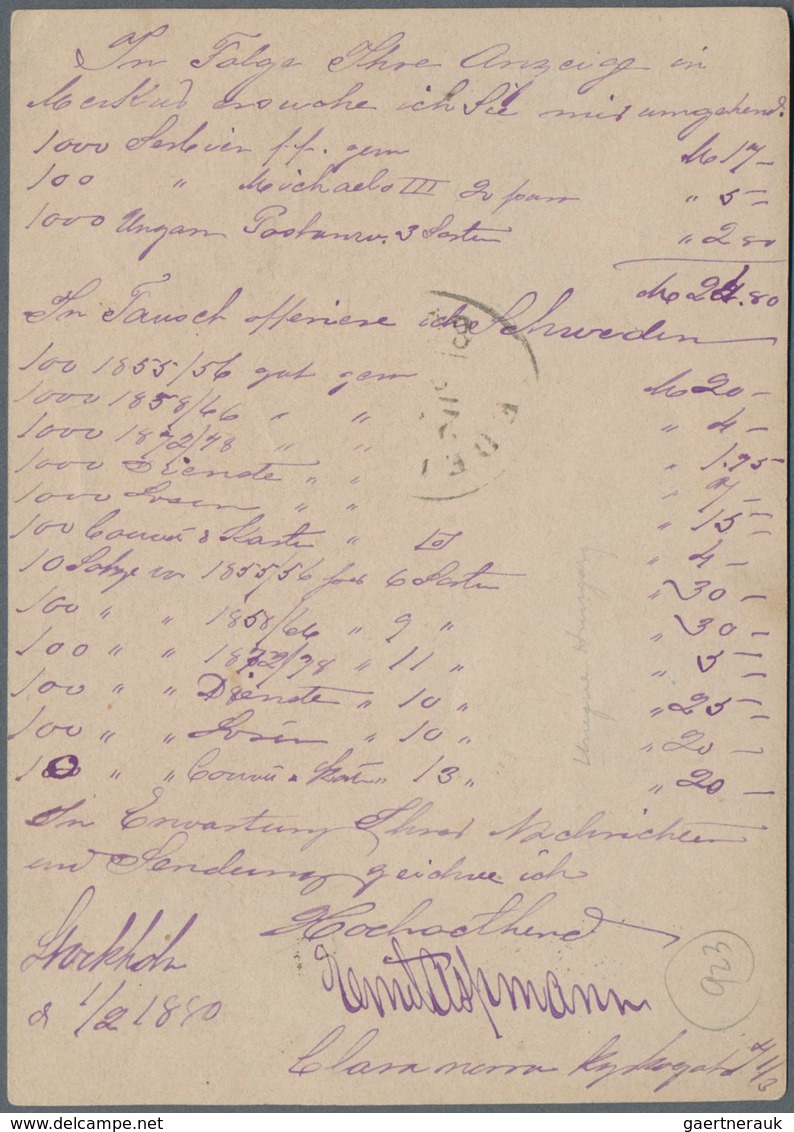 In Folge Ihre Anzeige in
Merkur ersuche ich Sie mir umgehend.
1000 Serbien f.f. gem M 17 –
100 " Michael III 20 para " 5 –
1000 Ungarn Postanw. 3 Sorten " 2 80
M 24.80
In Tausch offeriere ich Schweden
100 1855/56 gut gem M 20 –
1000 1858/66 " " " 4 –
1000 1872/78 " " " 1.75
1000 Dienste " " " 7 –
1000 Lösen " " " 15 –
100 Couv. & Karten " " 4 –
10 Sätze von 1855/56 6 Sorten " 30 –
100 " " 1858/66 " 9 " " 30 –
100 " " 1872/78 " 11 " " 5 –
100 " " Dienste " 10 " " 25 –
100 " " Lösen " 10 " " 20 –
100 " " Couv. & Karten " 13 " " 20 –
In Erwartung Ihrer Nachrichten
und Sendung zeichne ich
Hochachtend
Stockholm
d 1/2 1880
Clara norra Kyrkogata
923
Unique Hungary
gaertnerauk